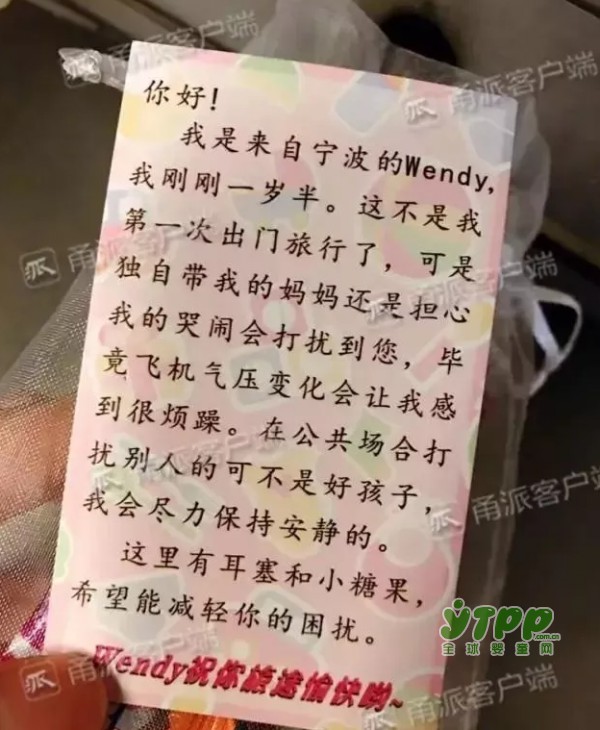 你好！
我是来自宁波的Wendy，
我刚刚一岁半。这不是我
第一次出门旅行了，可是
独自带我的妈妈还是担心
我的哭闹会打扰到您，毕
竟飞机气压变化会让我感
到很烦躁。在公共场合打
扰别人的可不是好孩子，
我会尽力保持安静的。
这里有耳塞和小糖果，
希望能减轻你的困扰。
Wendy祝你旅途愉快哟~
甬派客户端
甬派客户端
甬派客户端
甬派客户端
甬派客户端
甬派客户端
甬派客户端
YTPP.com.cn
全球婴童网